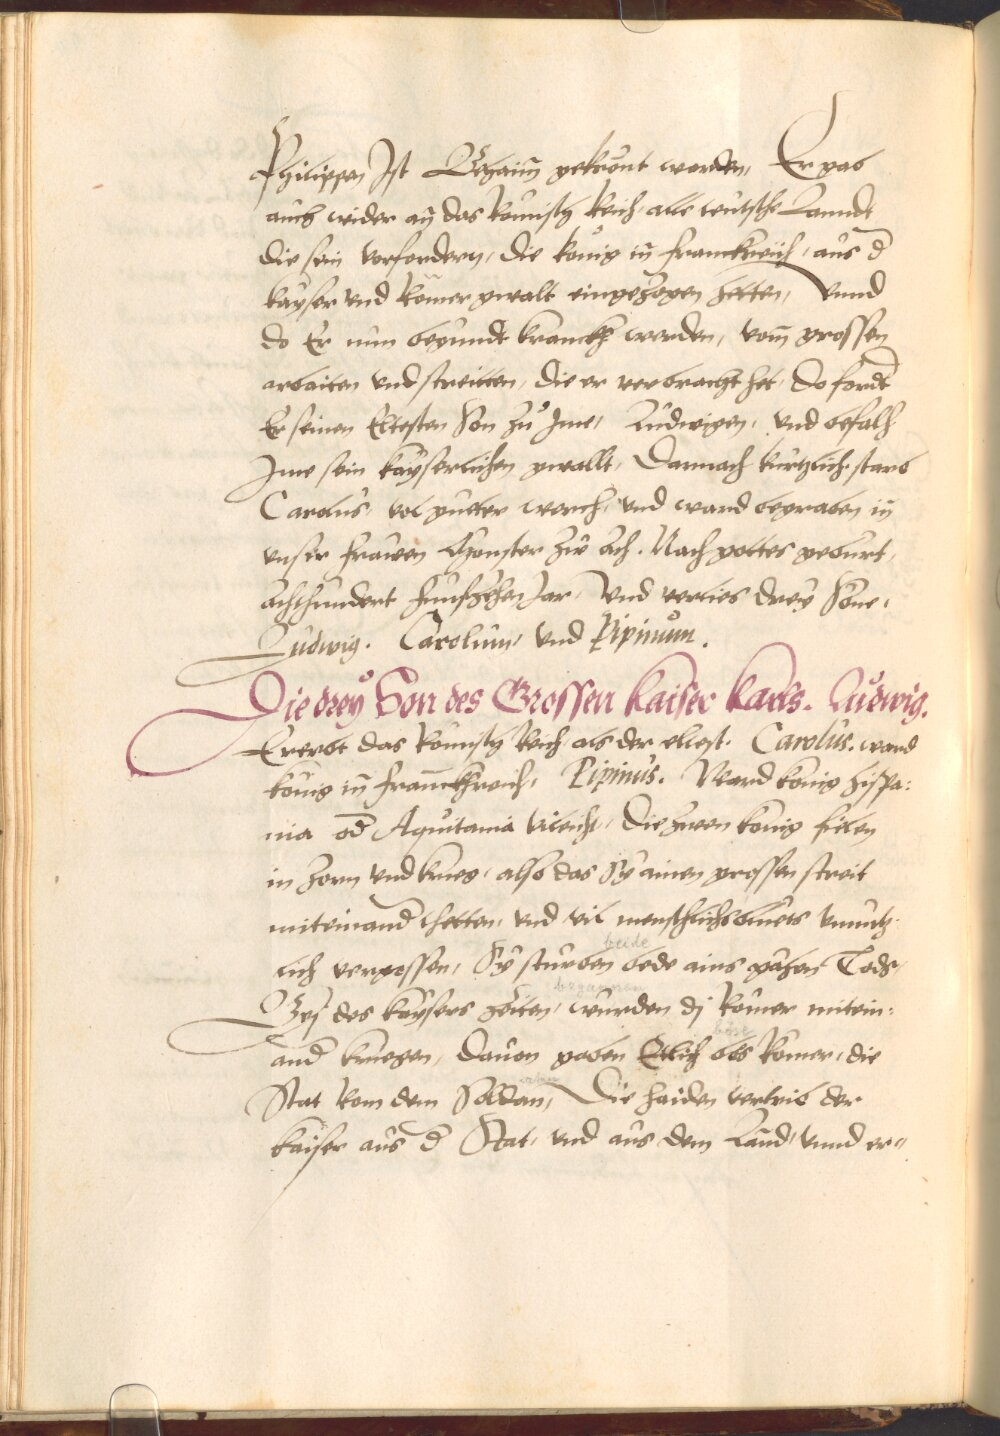 Philippen Ist gekrönt worden, Er gab
auch wider an das Römisch Reich, alle teutsche Lanndt
die sein Vorfordern, die könig in franckreich, aus d
kayser vnd Römer gwalt eingezogen hetten, Vnnd
do Er nun begundt kranckh werden, vom grossen
arbaiten vnd streitten, die er verbracht het, Do fordt
Er seinen Eltesten Son zů Ime, Ludwigen, vnd befalh
Ime sein kayserlichen gwallt, Darnach kurtzlich starb
Carolus, vol gutter werch, vnd ward begraben in
vnser frawen Chonster zw Ach. Nach gottes geburt,
achthundert funfzehen Jar, Vnd verlies drey Söne,
Ludwig. Carolum, vnd Pipinum.
Die drey Son des Grossen kaiser karls. Ludwig.
Ererbt das Römisch Reich, als der eltest. Carolus. ward
könig in franckhreich, Pipinus. Ward könig hispa:
nia od Aquitania vileicht, Die zwen könig fielen
in zorn vnd krieg, also das Sy ainen grossen streit
miteinand hetten, vnd vil menschlichs bluets vnnutz
lich vergossen, Sy sturben bede ains gähen Tods,
beide
Bey des kaysers zeiten, wurden dj Römer mitein:
begunnen
and kriegen, Dauon gaben Etlich bös Römer, die
böse
Stat Rom dem Soldan, Die haiden vertrib der
kaiser aus d Stat, vnd aus dem Land, vnnd er=